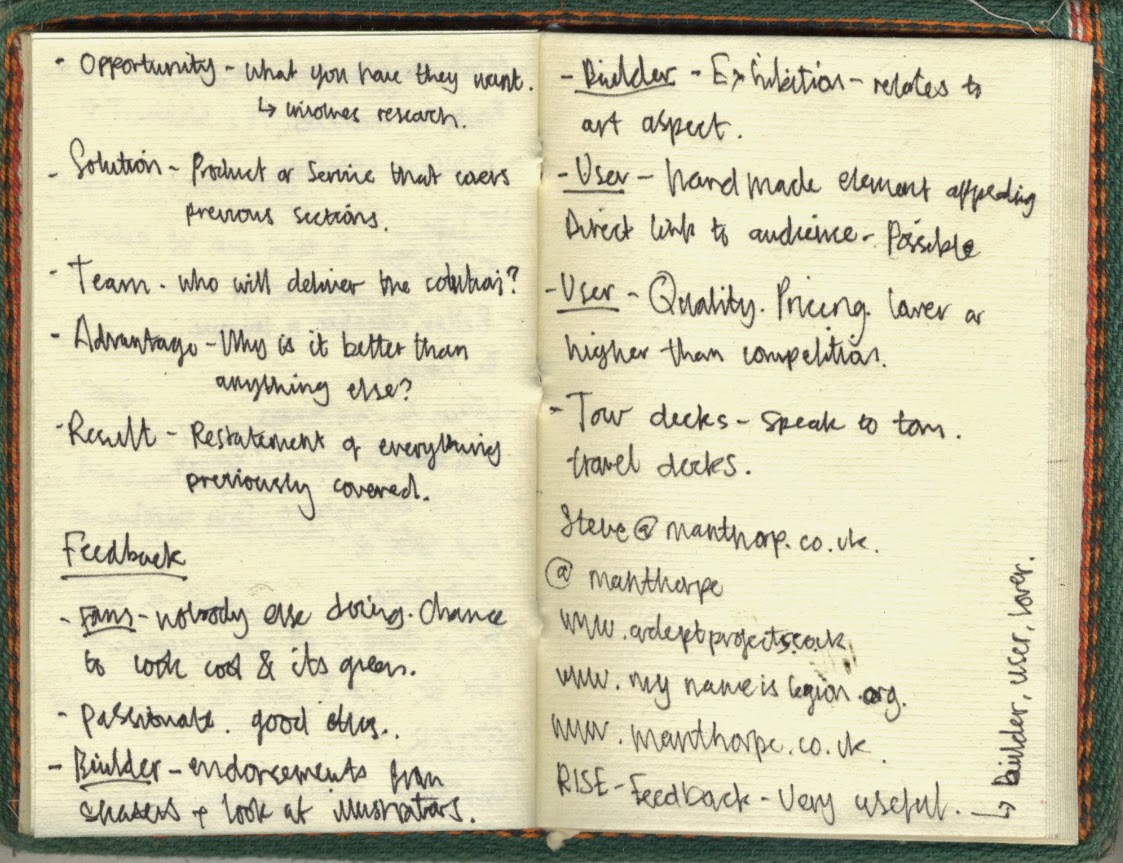 - Opportunity - what you have they want.
↳ involves research.
- Solution - Product or Service that covers
previous sections.
- Team - who will deliver the solution?
- Advantage - Why is it better than
anything else?
- Result - Restatement of everything
previously covered.
Feedback
- Fans - nobody else doing. Chance
to look cool & its green.
- passionate. good
- Builder - endorsements from
skaters + look at illustrators.
- Builder - Exhibition - relates to
art aspect.
- User - hand made element appealing
Direct link to audience - Possible
- User - Quality. Pricing. lower or
higher than competition.
- Tour decks - speak to tom.
travel decks.
Steve@manthorp.co.uk.
@manthorpe
www.adeptprojects.co.uk
www.mynameislegion.org.
www.manthorpe.co.uk
RISE - Feedback - Very useful.
↳ Builder, user, lover.